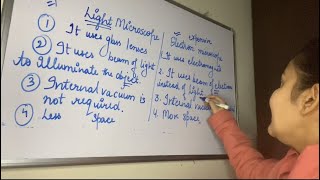 ① Light Microscope
It uses glass lenses
② It uses beam of light
to illuminate the object
③ Internal vacuum is
not required.
④ Less space
Electron microscope
1. It uses electromagnets
2. It uses beam of electron
instead of light
3. Internal
4. More space